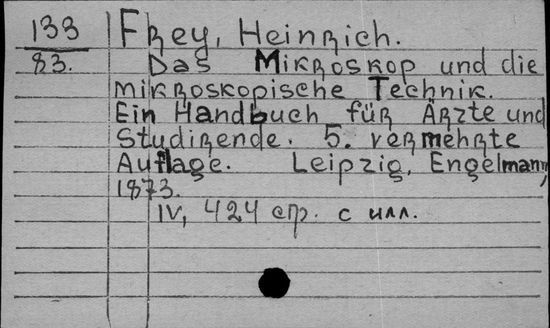 133 Frey, Heinrich.
83. Das Mikroskop und die
mikroskopische Technik.
Ein Handbuch für Ärzte und
Studirende. 5. vermehrte
Auflage. Leipzig, Engelmann,
1873.
IV, 424 стр. с илл.